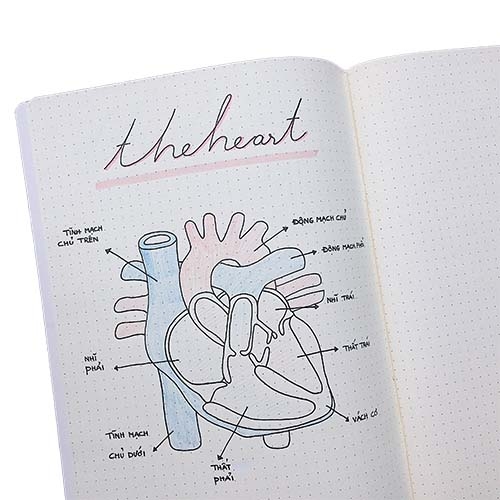 the heart
TĨNH MẠCH
CHỦ TRÊN
ĐỘNG MẠCH CHỦ
ĐỘNG MẠCH PHỔI
NHĨ TRÁI
THẤT TRÁI
NHĨ
PHẢI
VÁCH CƠ
TĨNH MẠCH
CHỦ DƯỚI
THẤT
PHẢI